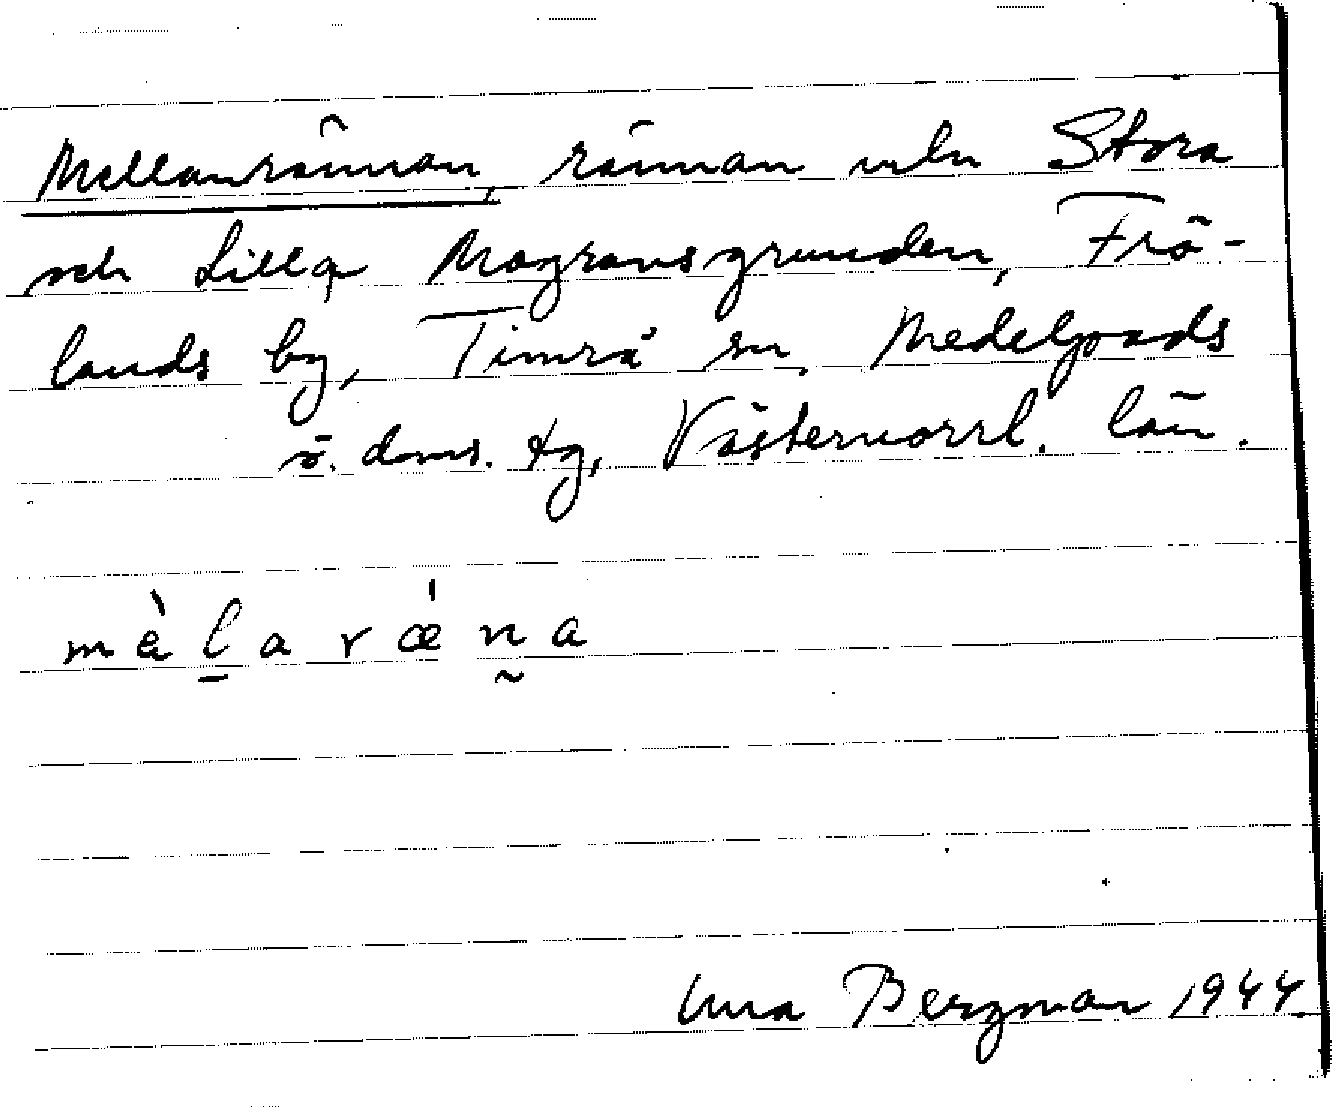 Mellanrännan, rännan mln Stora
och Lilla Magransgrunden, Frö-
lands by, Timrå sn, Medelpads
ö. doms. tg, Västernorrl. län.
mèlaræ´na
Bergman 1944